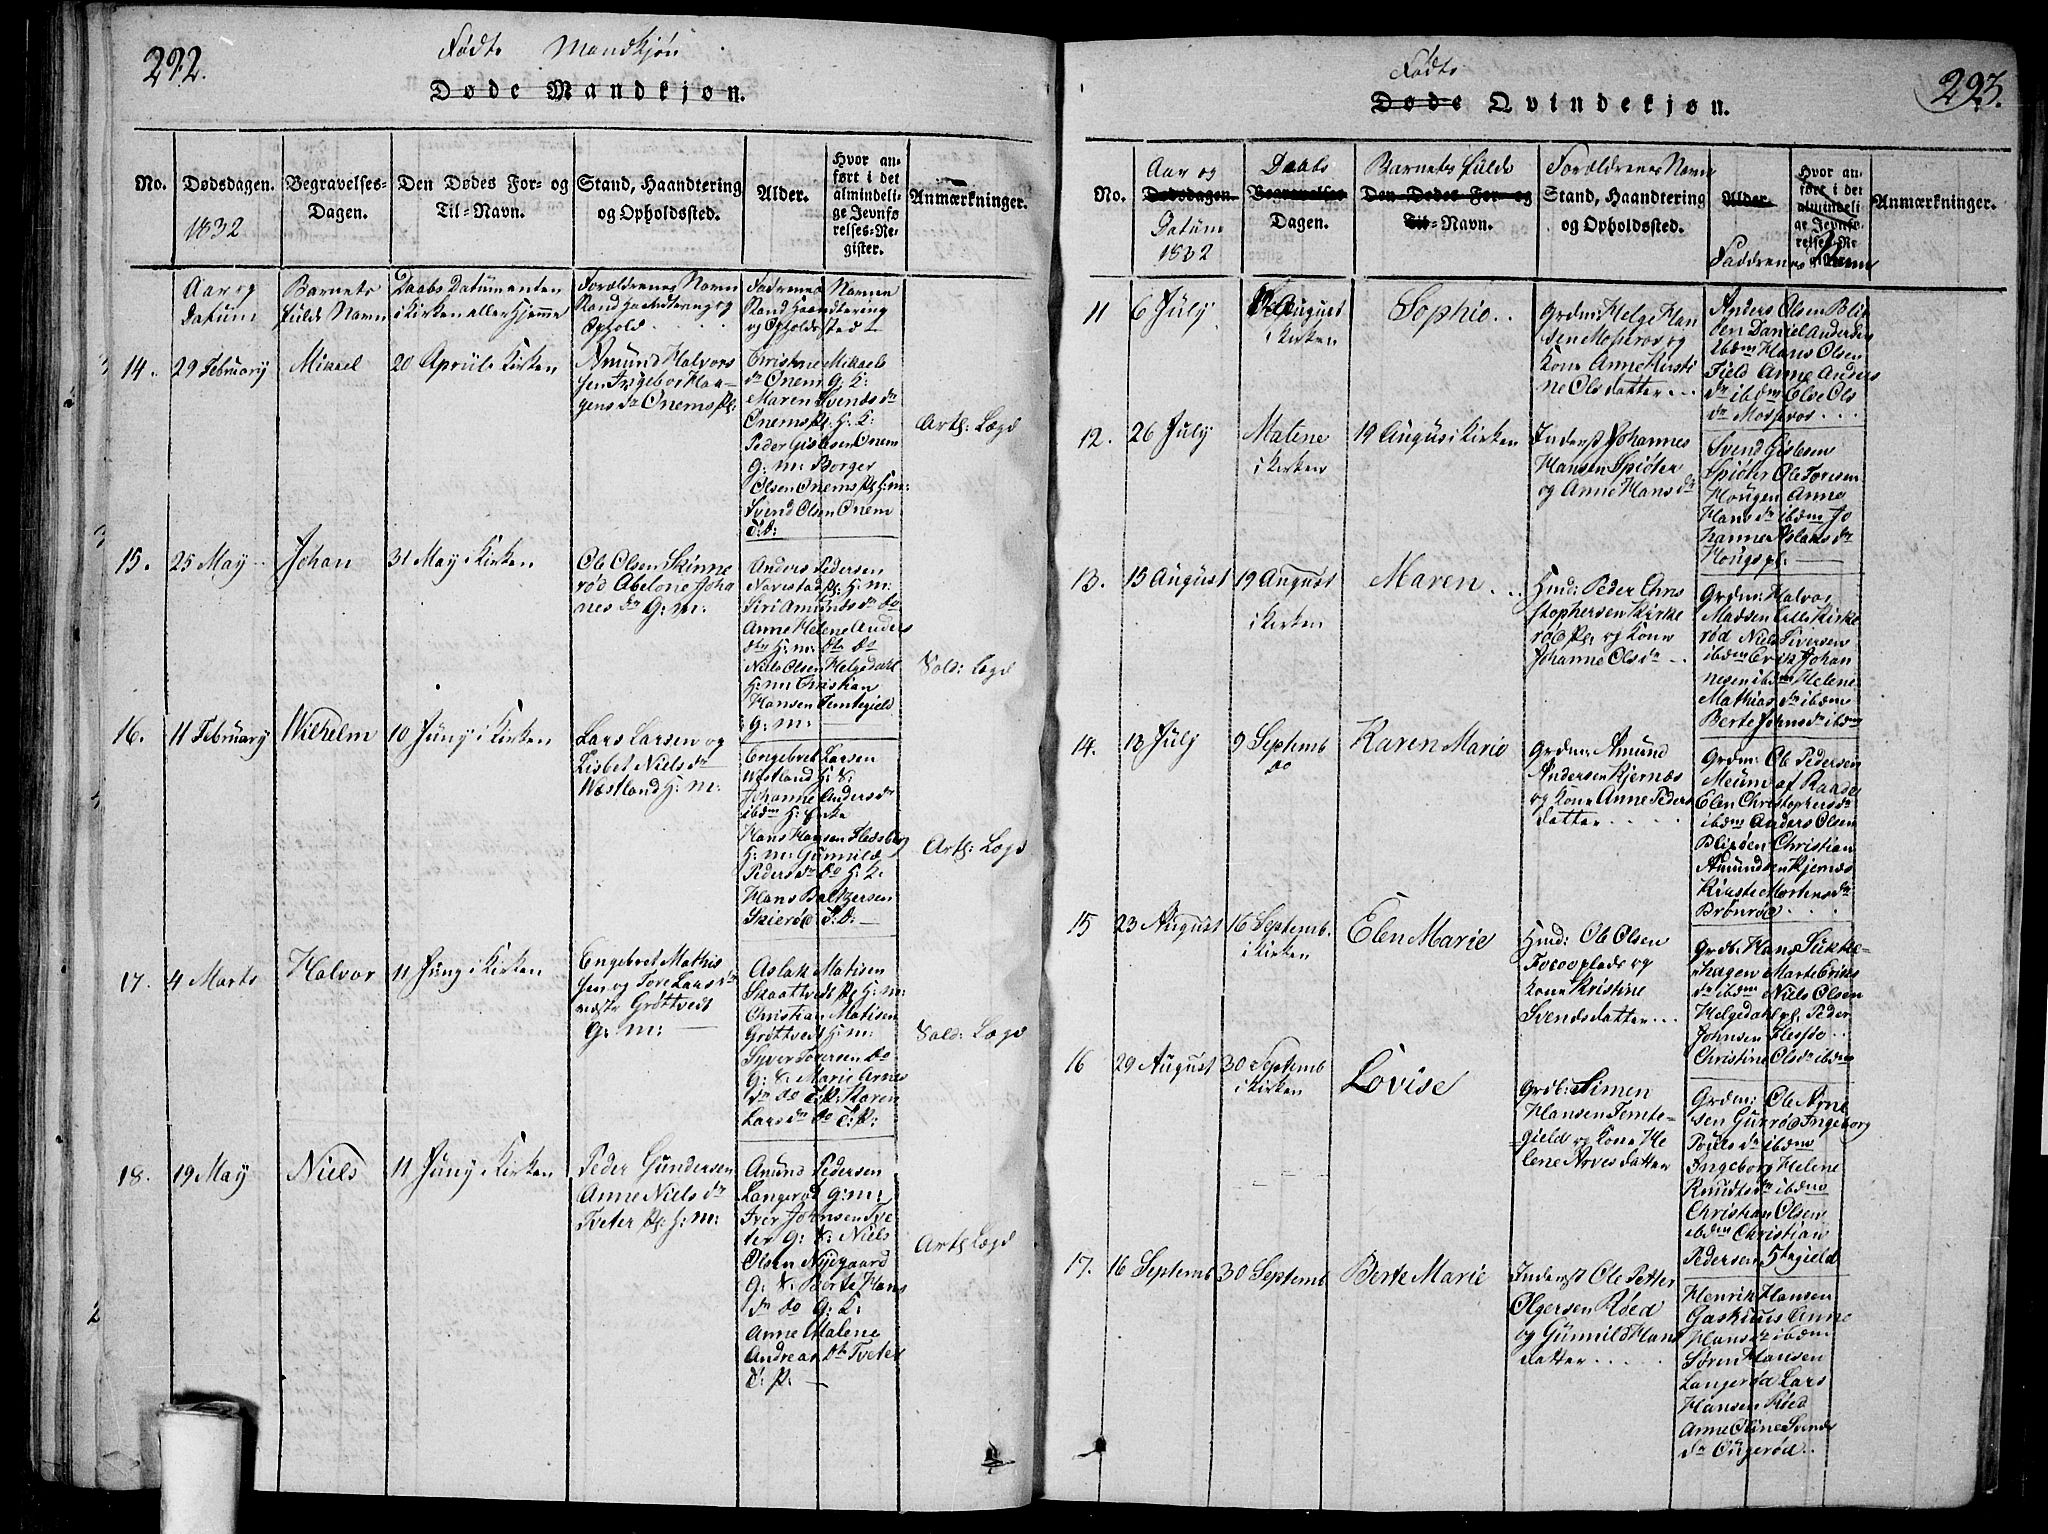 292.
Fødte Mandkjøn
Døde Mandkjøn.
No.
Dødsdagen.
1832
Begravelses-
Dagen.
Den Dødes For- og
Til-Navn.
Stand, Haandtering
og Opholdssted.
Alder.
Hvor an-
ført i det
almindeli-
ge Jevnfø
relses-Re-
gister.
Anmærkninger.
Aar og
Datum
Barnets
fulde Navn
Daabs Datum enten
i Kirken eller Hjemme
Forældrenes Navn
Stand Haandtering og
Ophold
Faddrenes Navne
Stand Haandtering
og Opholdssted
14.
29 February
Mikael
20 April i Kirken
Amund Halvors
sen Ingebor Haa-
gensdr Onems Pl.
Christine Mikaels
dr Onem G: K:
Maren Svendsdr
Onemspl. H. K:
Peder Gislesen Onem
G: m: Borger
Olsen Onems Pl. H: m:
Svend Olsen Onem
T: D:
Arth: Lægd
15.
25 May
Johan
31 May i Kirken
Ole Olsen Skinne
rød Abelone Joha
nesdr G: m:
Anders Pedersen
Navestadpl: H: m:
Siri Amundsdr do
Anne Helene Anders
dtr H: m: do do
Niels Olsen Helgedahl
H: m: Christian
Hansen Temtegield
G: m:
Sold: Lægd
16.
11 February
Wilhelm
10 Juny i Kirken
Lars Larsen og
Lisbet Nielsdr
Wæstland H: m:
Engebret Larsen
Westland H: K:
Johanne Andersdr
ibdm H: Enke
Hans Hansen Fledsberg
H: m: Gunnild
Pedersdr do H: K:
Hans Baltzersen
Skierød T: D:
Arth: Lægd
17.
4 Marts
Halvor
11 Juny i Kirken
Engebret Mathis
sen og Tore Larsdr
nedstr Grøttvedt
G: m:
Aslak Matisen
Skaattvedt Pl. H: m:
Christian Matisen
Grøttvedt H: m:
Syver Torersen do
G: K: Marie Arnes
dr do T: P: Karen
Larsdr do T: P:
Sold: Lægd
18.
19 May
Niels
11 Juny i Kirken
Peder Gundersen
Anne Nielsdr
Tveter Pl: H: m:
Amund Pedersen
Langerød G: m:
Iver Johnsen Tve
ter G: K: Niels
Olsen Nygaard
G: K: Berte Hans
dr do G: K:
Anne Malene
Andreasdtr Tveter
T: P.
Arth Lægd
293.
Fødte
Døde Qvindekjøn.
No.
Aar og
Dødsdagen.
Datum
1832
Daabs
Begravelses
Dagen.
Barnets fulde
Den Dødes For- og
Til-Navn.
Forældrenes Navn
Stand, Haandtering
og Opholdssted.
Alder.
Hvor an-
ført i det
almindeli
ge Jevnfø-
relses-Re
Faddrenes Navne
Anmærkninger.
11
6 July
August
i Kirken
Sophie..
Grdm: Helge Han
sen Mosseros og
Kone Anne Kirsti
ne Olsdatter
Anders Olsen Blix
sen Daniel Andersen
ibdm Hans Olsen
Field Anne Anders
dr ibdm Elve Ols
dr Mosseros
12.
26 July
Malene
i Kirken
19 August i Kirken
Inderst Johannes
Hansen Spiøter
og Anne Hansdr
Svend Gislesen
Spiøter Ole Toresen
Hougen Anne
Hansdr ibdm Jo
hanne Aslaksdr
Hougspl.
13.
13 August
19 August
i Kirken
Maren
Hmd: Peder Chris
stophersen Kirke
rød Pl. og Kone
Johanne Olsdr
Grdm: Halvor
Madsen Lille Kirke
rød Niels Siversen
ibdm Erik Johan
nesen ibdm Helene
Mathiasdr ibdm
Berte Johnsdr ibdm
14.
13 July
9 Septemb
do
Karen Marie
Grdm: Amund
Andersen Kjernæs
og Kone Anne Peders
datter
Grdm: Ole Pedersen
Meum af Raade
Elen Christophersdr
ibdm Anders Olsen
Blixsen Christian
Amundsen Kjernæs
Kirsti Mortensdr
Brønrød
15
23 August
16 Septemb.
i Kirken
Elen Marie
Hmd: Ole Olsen
Foss plads og
Kone Kristine
Svendsdatter
Grdb. Hans Stikke-
rhagen Marte Eriks
dr ibdm Niels Olsen
Helgedahl pl. Peder
Johnsen
Christine Olsdr ibdm
16
29 August
30 Septemb
i Kirken
Lovise
Grdb: Simen
Hansen Temte-
gield og Kone He
lene Arvesdatter
Grdm: Ole Arne
sen Gurrød Ingeborg
Poulsdr ibdm
Ingeborg Helene
Knudtsdr ibdm
Christian Olsen
ibdm Christian
Pedersen Stegield
17.
16 Septemb
30 Septemb
Berte Marie
Inderst Ole Petter
Olgersen Røed
og Gunnild Hans
datter
Henrik Hansen
Gaskiuus Anne
Hansdr ibdm
Søren Hansen
Langerød Lars
Hansen Røed
Anne Oline Svends
dr Ougerød